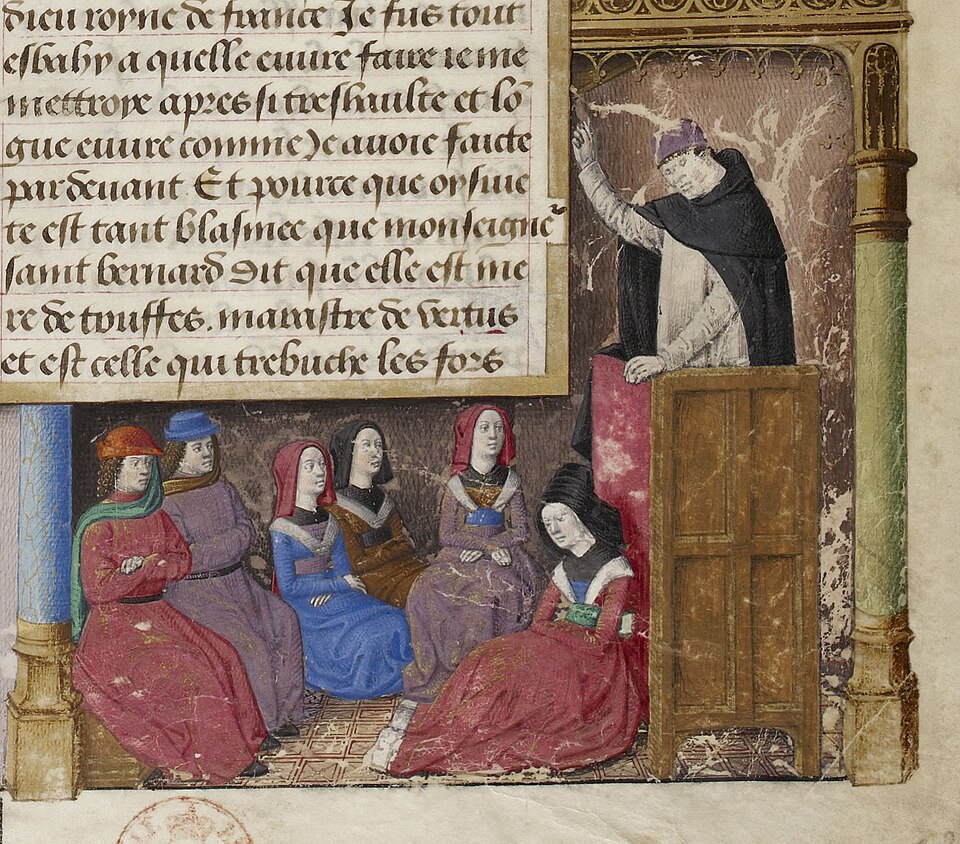 dieu royne de france Je fus tout
esbahy a quelle euure faire ie me
mettroye apres si treshaulte et lō
gue euure comme Je auoie faicte
par deuant Et pource que oysiue
te est tant blasmee que monseignr̃
saint bernard dit que elle est me
re de truffes. marastre de vertus
et est celle qui trebuche les fors